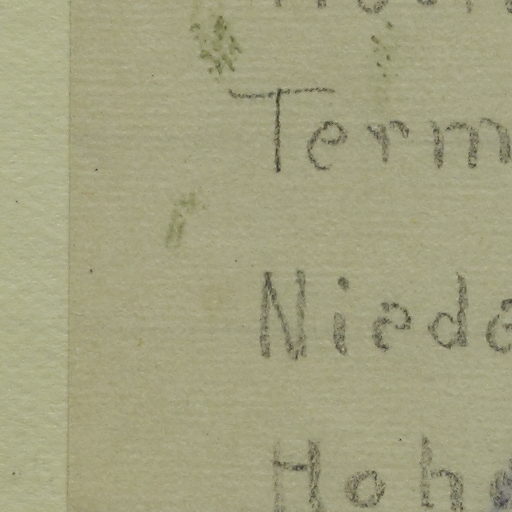 Term
Niede
Hohe